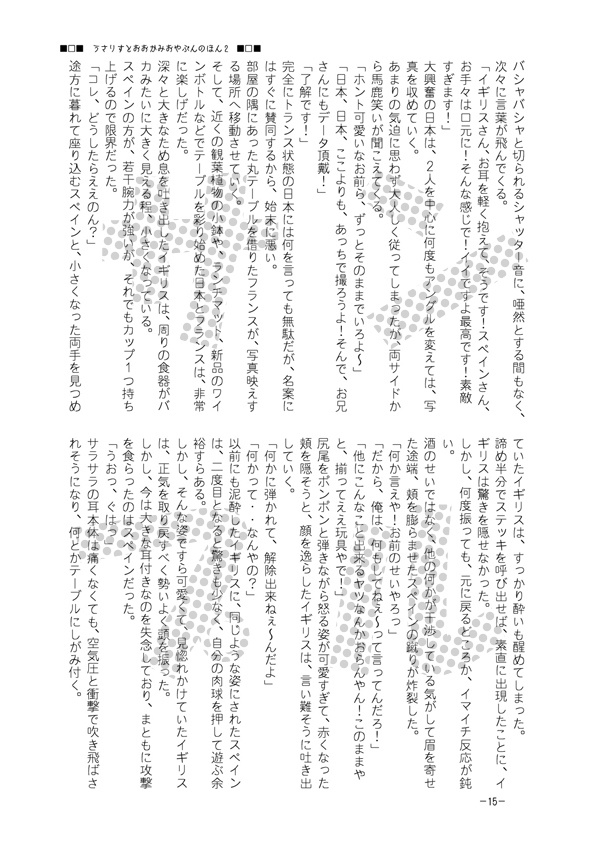 ■□■　うさりすとおおかみおやぶんのほん２　■□■
バシャバシャと切られるシャッター音に、唖然とする間もなく、
次々に言葉が飛んでくる。
「イギリスさん、お耳を軽く抱えて、そうです！スペインさん、
お手々は口元に！そんな感じで！イイですよ最高です！素敵
すぎます！」
大興奮の日本は、２人を中心に何度もアングルを変えては、写
真を収めていく。
あまりの気迫に思わず大人しく従ってしまったが、両サイドか
ら馬鹿笑いが聞こえてくる。
「ホント可愛いなお前ら、ずっとそのままでいろよ～」
「日本、日本、ここよりも、あっちで撮ろうよ！そんで、お兄
さんにもデータ頂戴！」
「了解です！」
完全にトランス状態の日本には何を言っても無駄だが、名案に
はすぐに賛同するから、始末に悪い。
部屋の隅にあった丸テーブルを借りたフランスが、写真映えす
る場所へ移動させていく。
そして、近くの観葉植物の小鉢や、ランチマット、新品のワイ
ンボトルなどでテーブルを彩り始めた日本とフランスは、非常
に楽しげだった。
深々と大きなため息を吐き出したイギリスは、周りの食器がバ
カみたいに大きく見える程、小さくなっている。
スペインの方が、若干腕力が強いが、それでもカップ１つ持ち
上げるので限界だった。
「コレ、どうしたらええのん？」
途方に暮れて座り込むスペインと、小さくなった両手を見つめ
ていたイギリスは、すっかり酔いも醒めてしまった。
諦め半分でステッキを呼び出せば、素直に出現したことに、イ
ギリスは驚きを隠せなかった。
しかし、何度振っても、元に戻るどころか、イマイチ反応が鈍
い。
酒のせいではなく、他の何かが干渉している気がして眉を寄せ
た途端、頬を膨らませたスペインの蹴りが炸裂した。
「何か言えや！お前のせいやろっ」
「だから、俺は、何もしてねぇ～って言ってんだろ！」
「他にこんなこと出来るヤツなんかおらんやん！このままや
と、揃ってええ玩具やで！」
尻尾をポンポンと弾きながら怒る姿が可愛すぎて、赤くなった
頬を隠そうと、顔を逸らしたイギリスは、言い難そうに吐き出
していく。
「何かに弾かれて、解除出来ねぇ～んだよ」
「何かって・・なんやの？」
以前にも泥酔したイギリスに、同じような姿にされたスペイン
は、二度目となると驚きも少なく、自分の肉球を押して遊ぶ余
裕すらある。
しかし、そんな姿ですら可愛くて、見惚れかけていたイギリス
は、正気を取り戻すべく勢いよく頭を振った。
しかし、今は大きな耳付きなのを失念しており、まともに攻撃
を食らったのはスペインだった。
「うおっ、ぐはっ」
サラサラの耳本体は痛くなくても、空気圧と衝撃で吹き飛ばさ
れそうになり、何とかテーブルにしがみ付く。
－15－